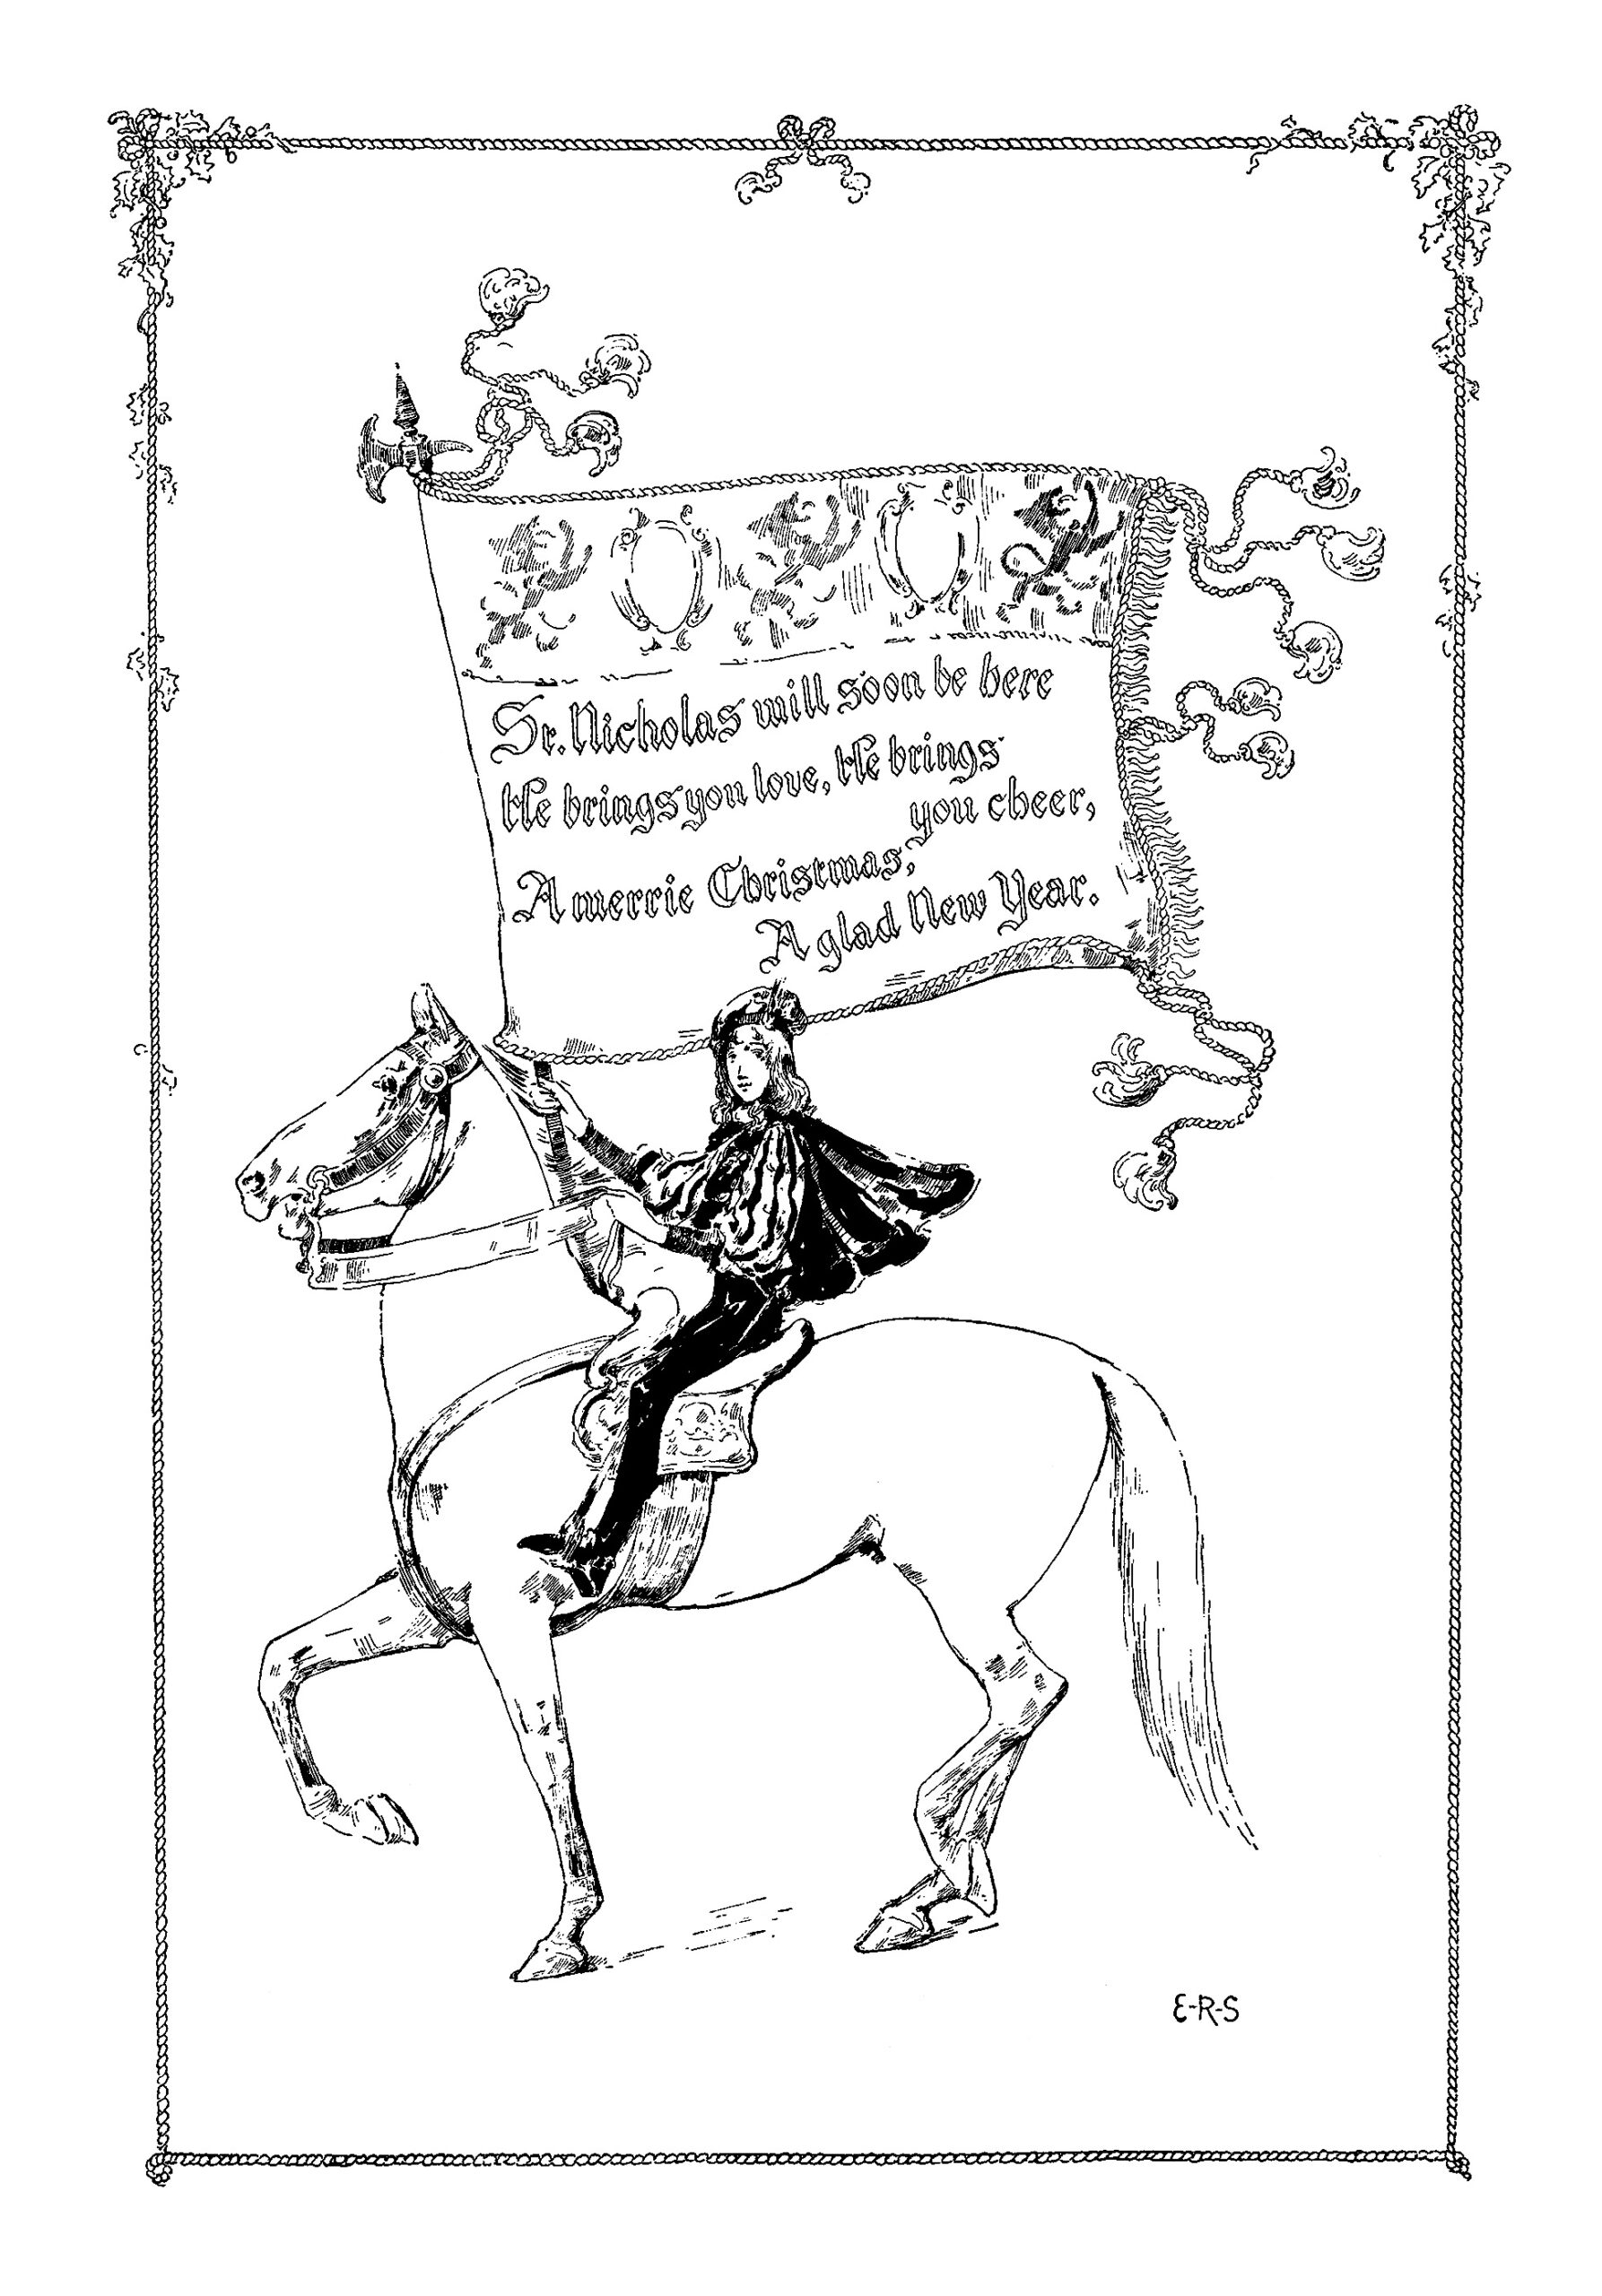 St. Nicholas will soon be here
He brings you love, He brings
you cheer,
A merrie Christmas,
A glad New Year.
E-R-S